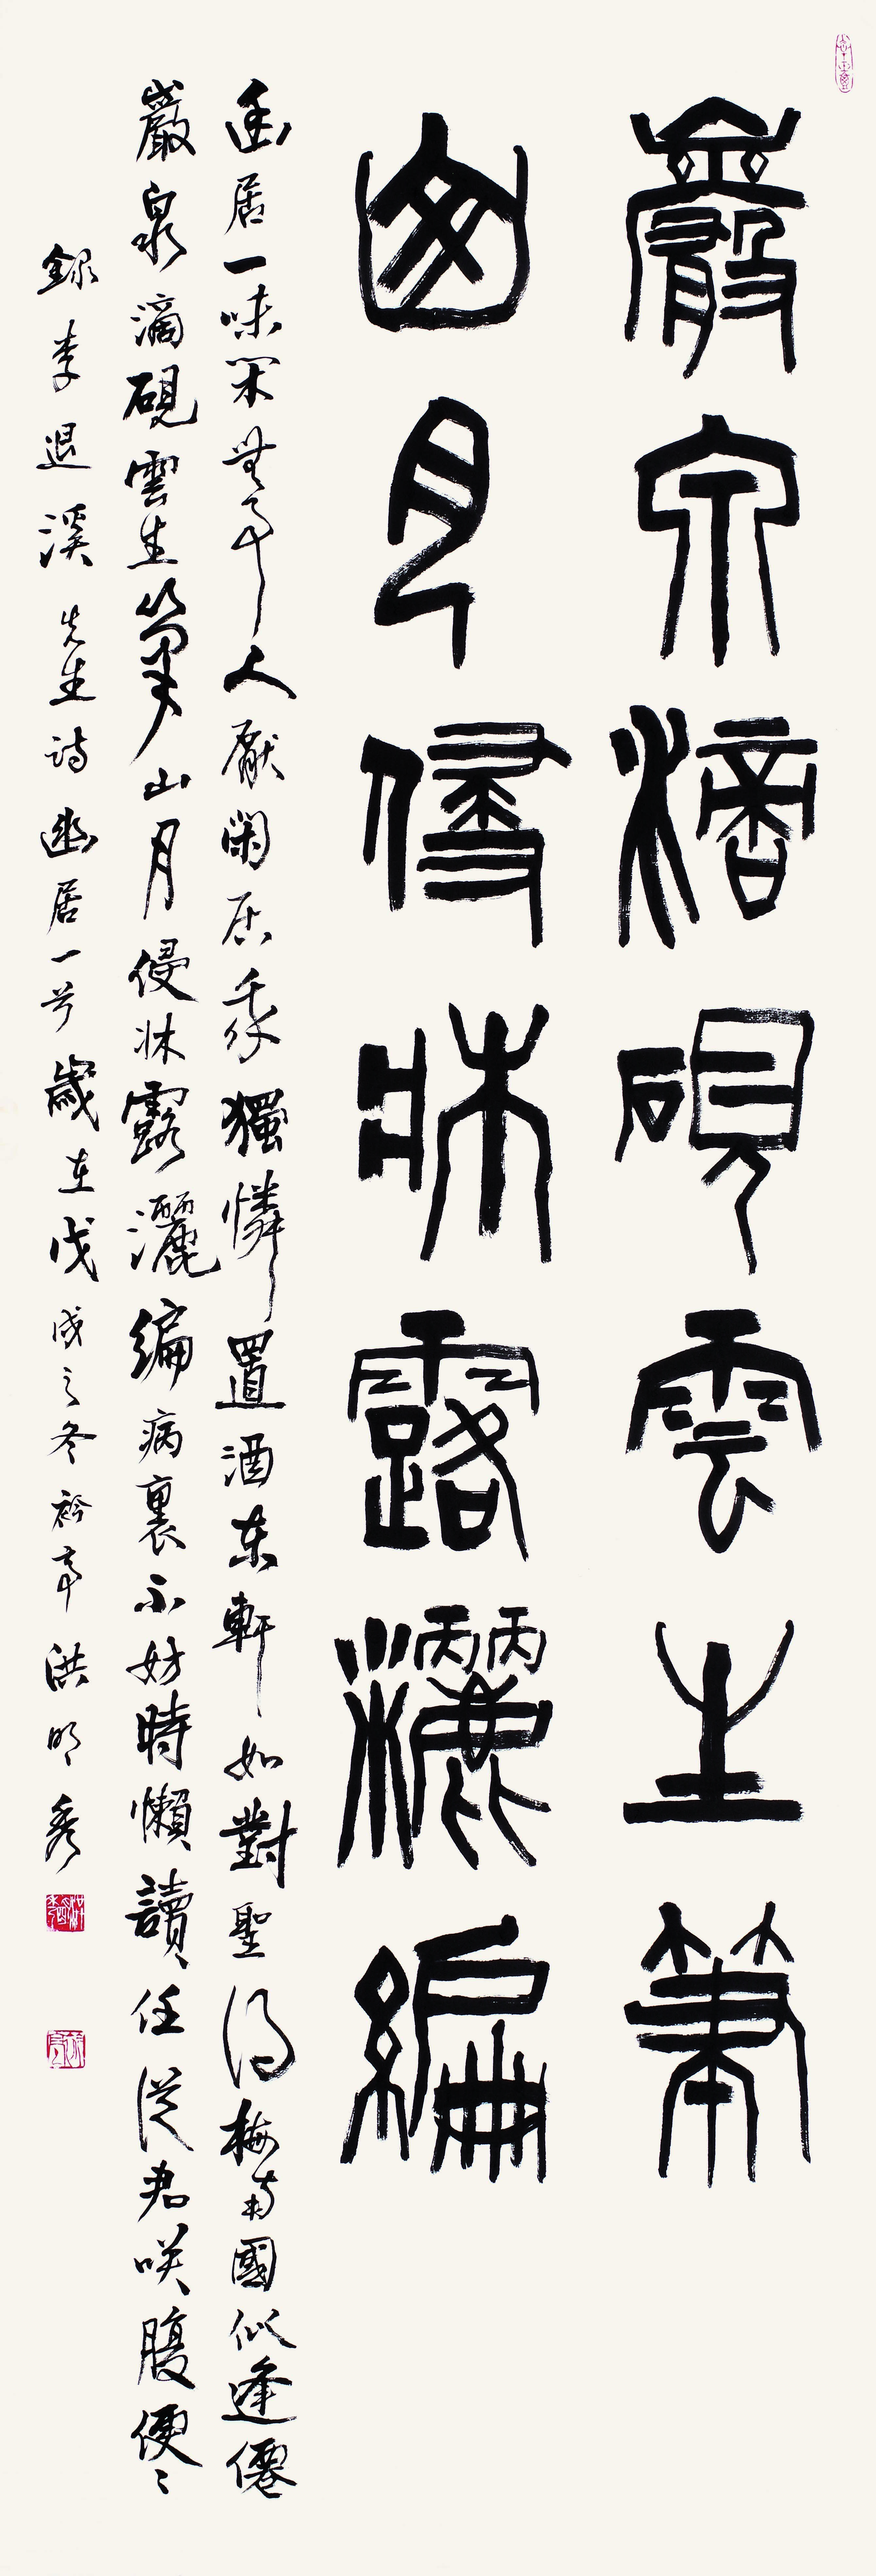 巖泉滴硯雲生筆
山月侵牀露灑編
幽居一味閑無事人厭閑居我獨憐置酒東軒如對聖得梅南國似逢僊
巖泉滴硯雲生筆山月侵牀露灑編病裏不妨時懶讀任從君咲腹便〻
錄李退溪先生詩幽居一首歲在戊戌之冬衿亭洪明秀